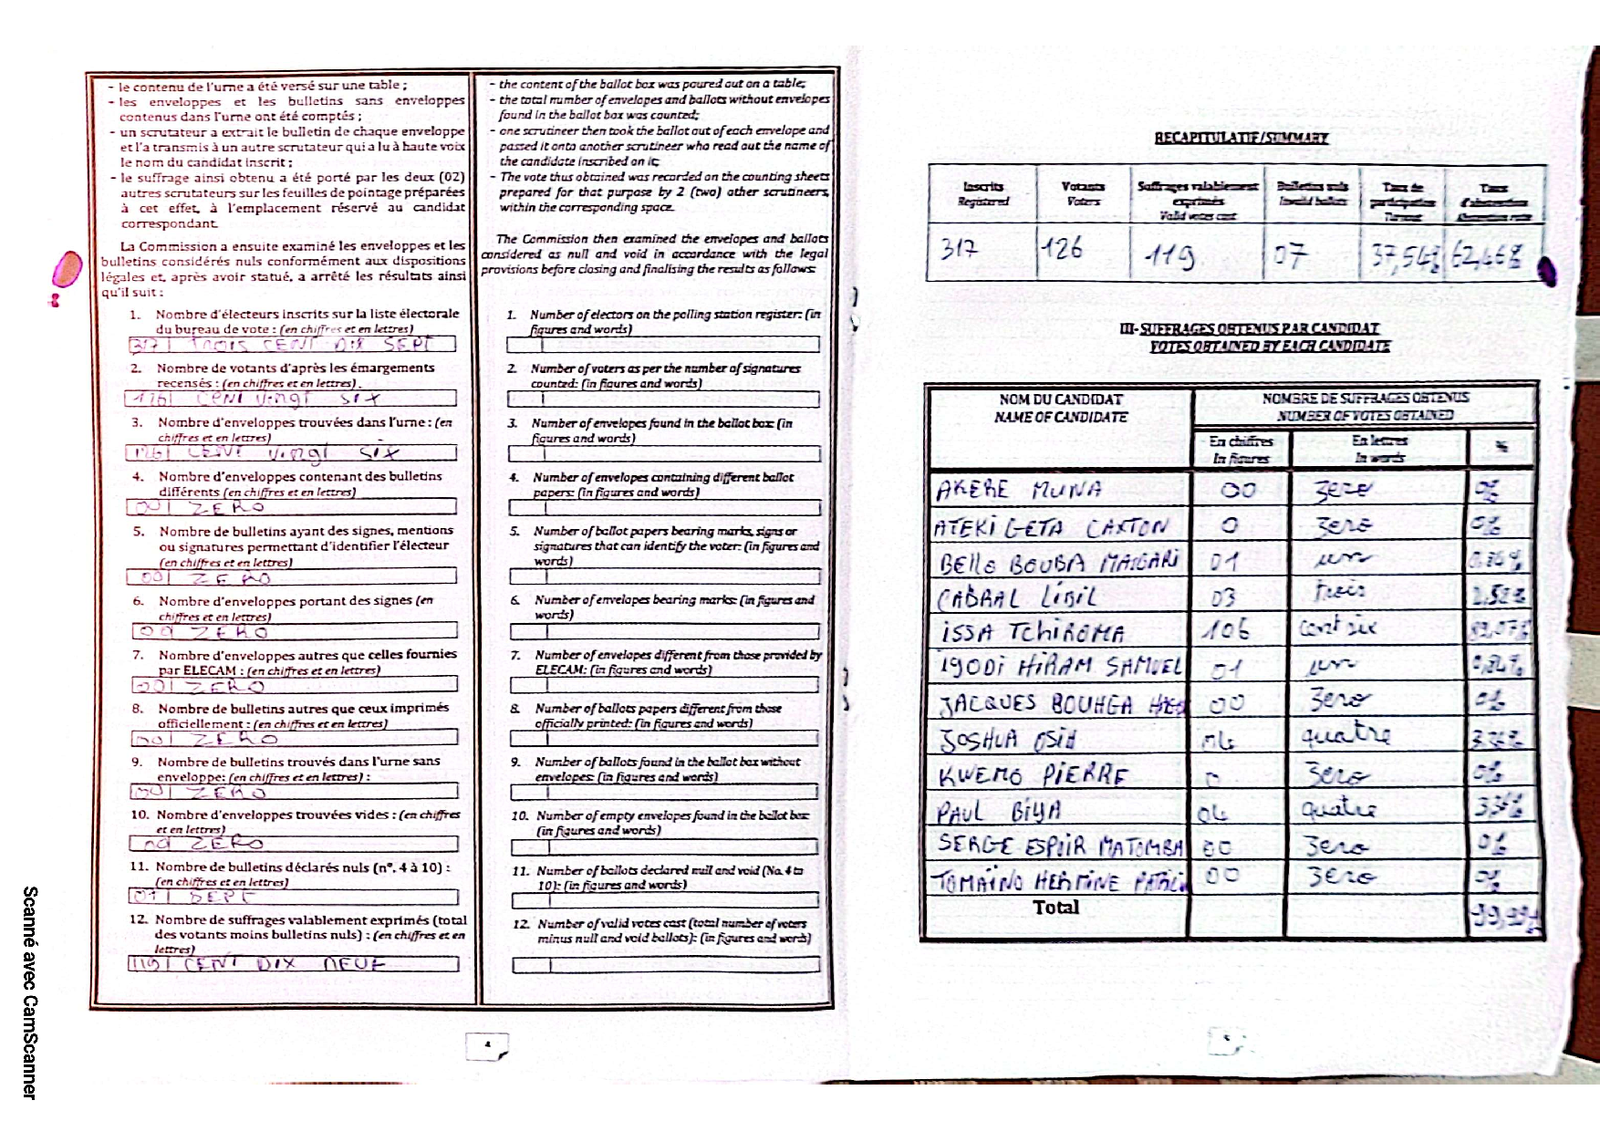 - le contenu de l'urne a été versé sur une table ;
- les enveloppes et les bulletins sans enveloppes
contenus dans l'urne ont été comptés ;
- un scrutateur a extrait le bulletin de chaque enveloppe
et l'a transmis à un autre scrutateur qui a lu à haute voix
le nom du candidat inscrit ;
- le suffrage ainsi obtenu a été porté par les deux (02)
autres scrutateurs sur les feuilles de pointage préparées
à cet effet, à l'emplacement réservé au candidat
correspondant.
La Commission a ensuite examiné les enveloppes et les
bulletins considérés nuls conformément aux dispositions
légales et, après avoir statué, a arrêté les résultats ainsi
qu'il suit :
1. Nombre d'électeurs inscrits sur la liste électorale
du bureau de vote : (en chiffres et en lettres)
317 TROIS CENT DIX SEPT
2. Nombre de votants d'après les émargements
recensés : (en chiffres et en lettres).
126 CENT VINGT SIX
3. Nombre d'enveloppes trouvées dans l'urne : (en
chiffres et en lettres)
126 CENT VINGT SIX
4. Nombre d'enveloppes contenant des bulletins
différents (en chiffres et en lettres)
00 ZERO
5. Nombre de bulletins ayant des signes, mentions
ou signatures permettant d'identifier l'électeur
(en chiffres et en lettres)
00 ZERO
6. Nombre d'enveloppes portant des signes (en
chiffres et en lettres)
00 ZERO
7. Nombre d'enveloppes autres que celles fournies
par ELECAM : (en chiffres et en lettres)
00 ZERO
8. Nombre de bulletins autres que ceux imprimés
officiellement : (en chiffres et en lettres)
00 ZERO
9. Nombre de bulletins trouvés dans l'urne sans
enveloppe: (en chiffres et en lettres) :
00 ZERO
10. Nombre d'enveloppes trouvées vides : (en chiffres
et en lettres)
00 ZERO
11. Nombre de bulletins déclarés nuls (n°. 4 à 10) :
(en chiffres et en lettres)
07 SEPT
12. Nombre de suffrages valablement exprimés (total
des votants moins bulletins nuls) : (en chiffres et en
lettres)
119 CENT DIX NEUF
- the content of the ballot box was poured out on a table;
- the total number of envelopes and ballots without envelopes
found in the ballot box was counted;
- one scrutineer then took the ballot out of each envelope and
passed it onto another scrutineer who read out the name of
the candidate inscribed on it;
- The vote thus obtained was recorded on the counting sheets
prepared for that purpose by 2 (two) other scrutineers,
within the corresponding space.
The Commission then examined the envelopes and ballots
considered as null and void in accordance with the legal
provisions before closing and finalising the results as follows:
1. Number of electors on the polling station register: (in
figures and words)
2. Number of voters as per the number of signatures
counted: (in figures and words)
3. Number of envelopes found in the ballot box: (in
figures and words)
4. Number of envelopes containing different ballot
papers: (in figures and words)
5. Number of ballot papers bearing marks, signs or
signatures that can identify the voter: (in figures and
words)
6. Number of envelopes bearing marks: (in figures and
words)
7. Number of envelopes different from those provided by
ELECAM: (in figures and words)
8. Number of ballots papers different from those
officially printed: (in figures and words)
9. Number of ballots found in the ballot box without
envelopes: (in figures and words)
10. Number of empty envelopes found in the ballot box:
(in figures and words)
11. Number of ballots declared null and void (No. 4 to
10): (in figures and words)
12. Number of valid votes cast (total number of voters
minus null and void ballots): (in figures and words)
4
RECAPITULATIF/SUMMARY
Inscrits Registered
Votants Voters
Suffrages valablement exprimés Valid votes cast
Bulletins nuls Invalid ballots
Taux de participation Turnout
Taux d'abstention Abstention rate
317 126 119 07 37,54% 62,46%
III- SUFFRAGES OBTENUS PAR CANDIDAT
VOTES OBTAINED BY EACH CANDIDATE
NOM DU CANDIDAT
NAME OF CANDIDATE
NOMBRE DE SUFFRAGES OBTENUS
NUMBER OF VOTES OBTAINED
En chiffres In figures
En lettres In words
%
AKERE MUNA 00 zero 0%
ATEKI CETA CAXTON 0 zero 0%
BELLO BOUBA MAIGARI 01 un 0,84%
CABRAL LIBIL 03 trois 2,52%
ISSA TCHIROMA 106 cent six 89,07%
IYODI HIRAM SAMUEL 01 un 0,84%
JACQUES BOUHGA 00 zero 0%
JOSHUA OSIH 04 quatre 3,36%
KWEMO PIERRE 0 zero 0%
PAUL BIYA 04 quatre 3,36%
SERGE ESPOIR MATOMBA 00 zero 0%
TOMAINO HERMINE PATRIC 00 zero 0%
Total 99,99%
5
Scanné avec CamScanner